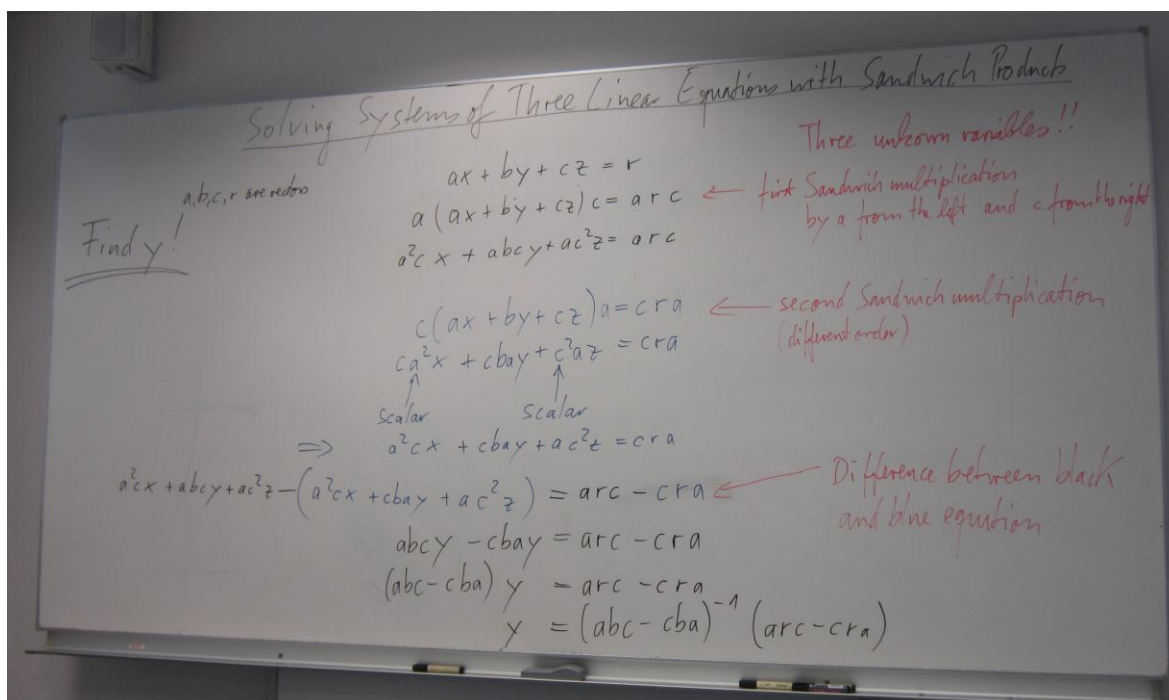 Solving Systems of Three Linear Equations with Sandwich Products
Three unkown variables!!
a,b,c,r are vectors
Find y!
ax + by + cz = r
a(ax + by + cz)c = arc ← first Sandwich multiplication
by a from the left and c from the right
a²cx + abcy + ac²z = arc
c(ax + by + cz)a = cra ← second Sandwich multiplication
(different order)
ca²x + cbay + c²az = cra
↑ ↑
scalar scalar
⇒ a²cx + cbay + ac²z = cra
a²cx + abcy + ac²z − (a²cx + cbay + ac²z) = arc − cra ← Difference between black
and blue equation
abcy − cbay = arc − cra
(abc − cba) y = arc − cra
y = (abc − cba)⁻¹ (arc − cra)